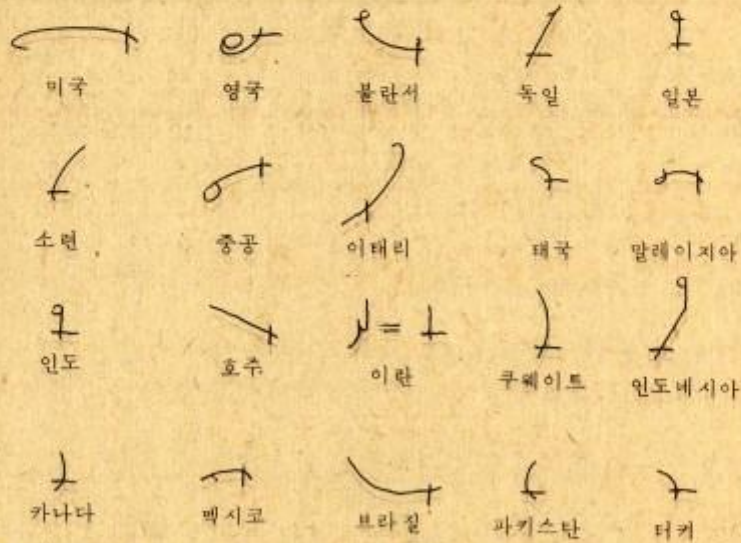 미국 영국 불란서 독일 일본
소련 중공 이태리 태국 말레이지아
=
인도 호주 이란 쿠웨이트 인도네시아
카나다 멕시코 브라질 파키스탄 터키